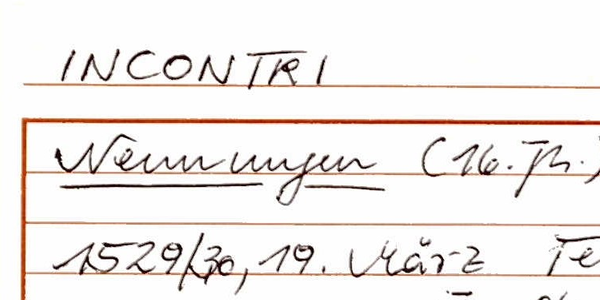 INCONTRI
Nennungen (16. Jh.)
1529/30, 19. März Te